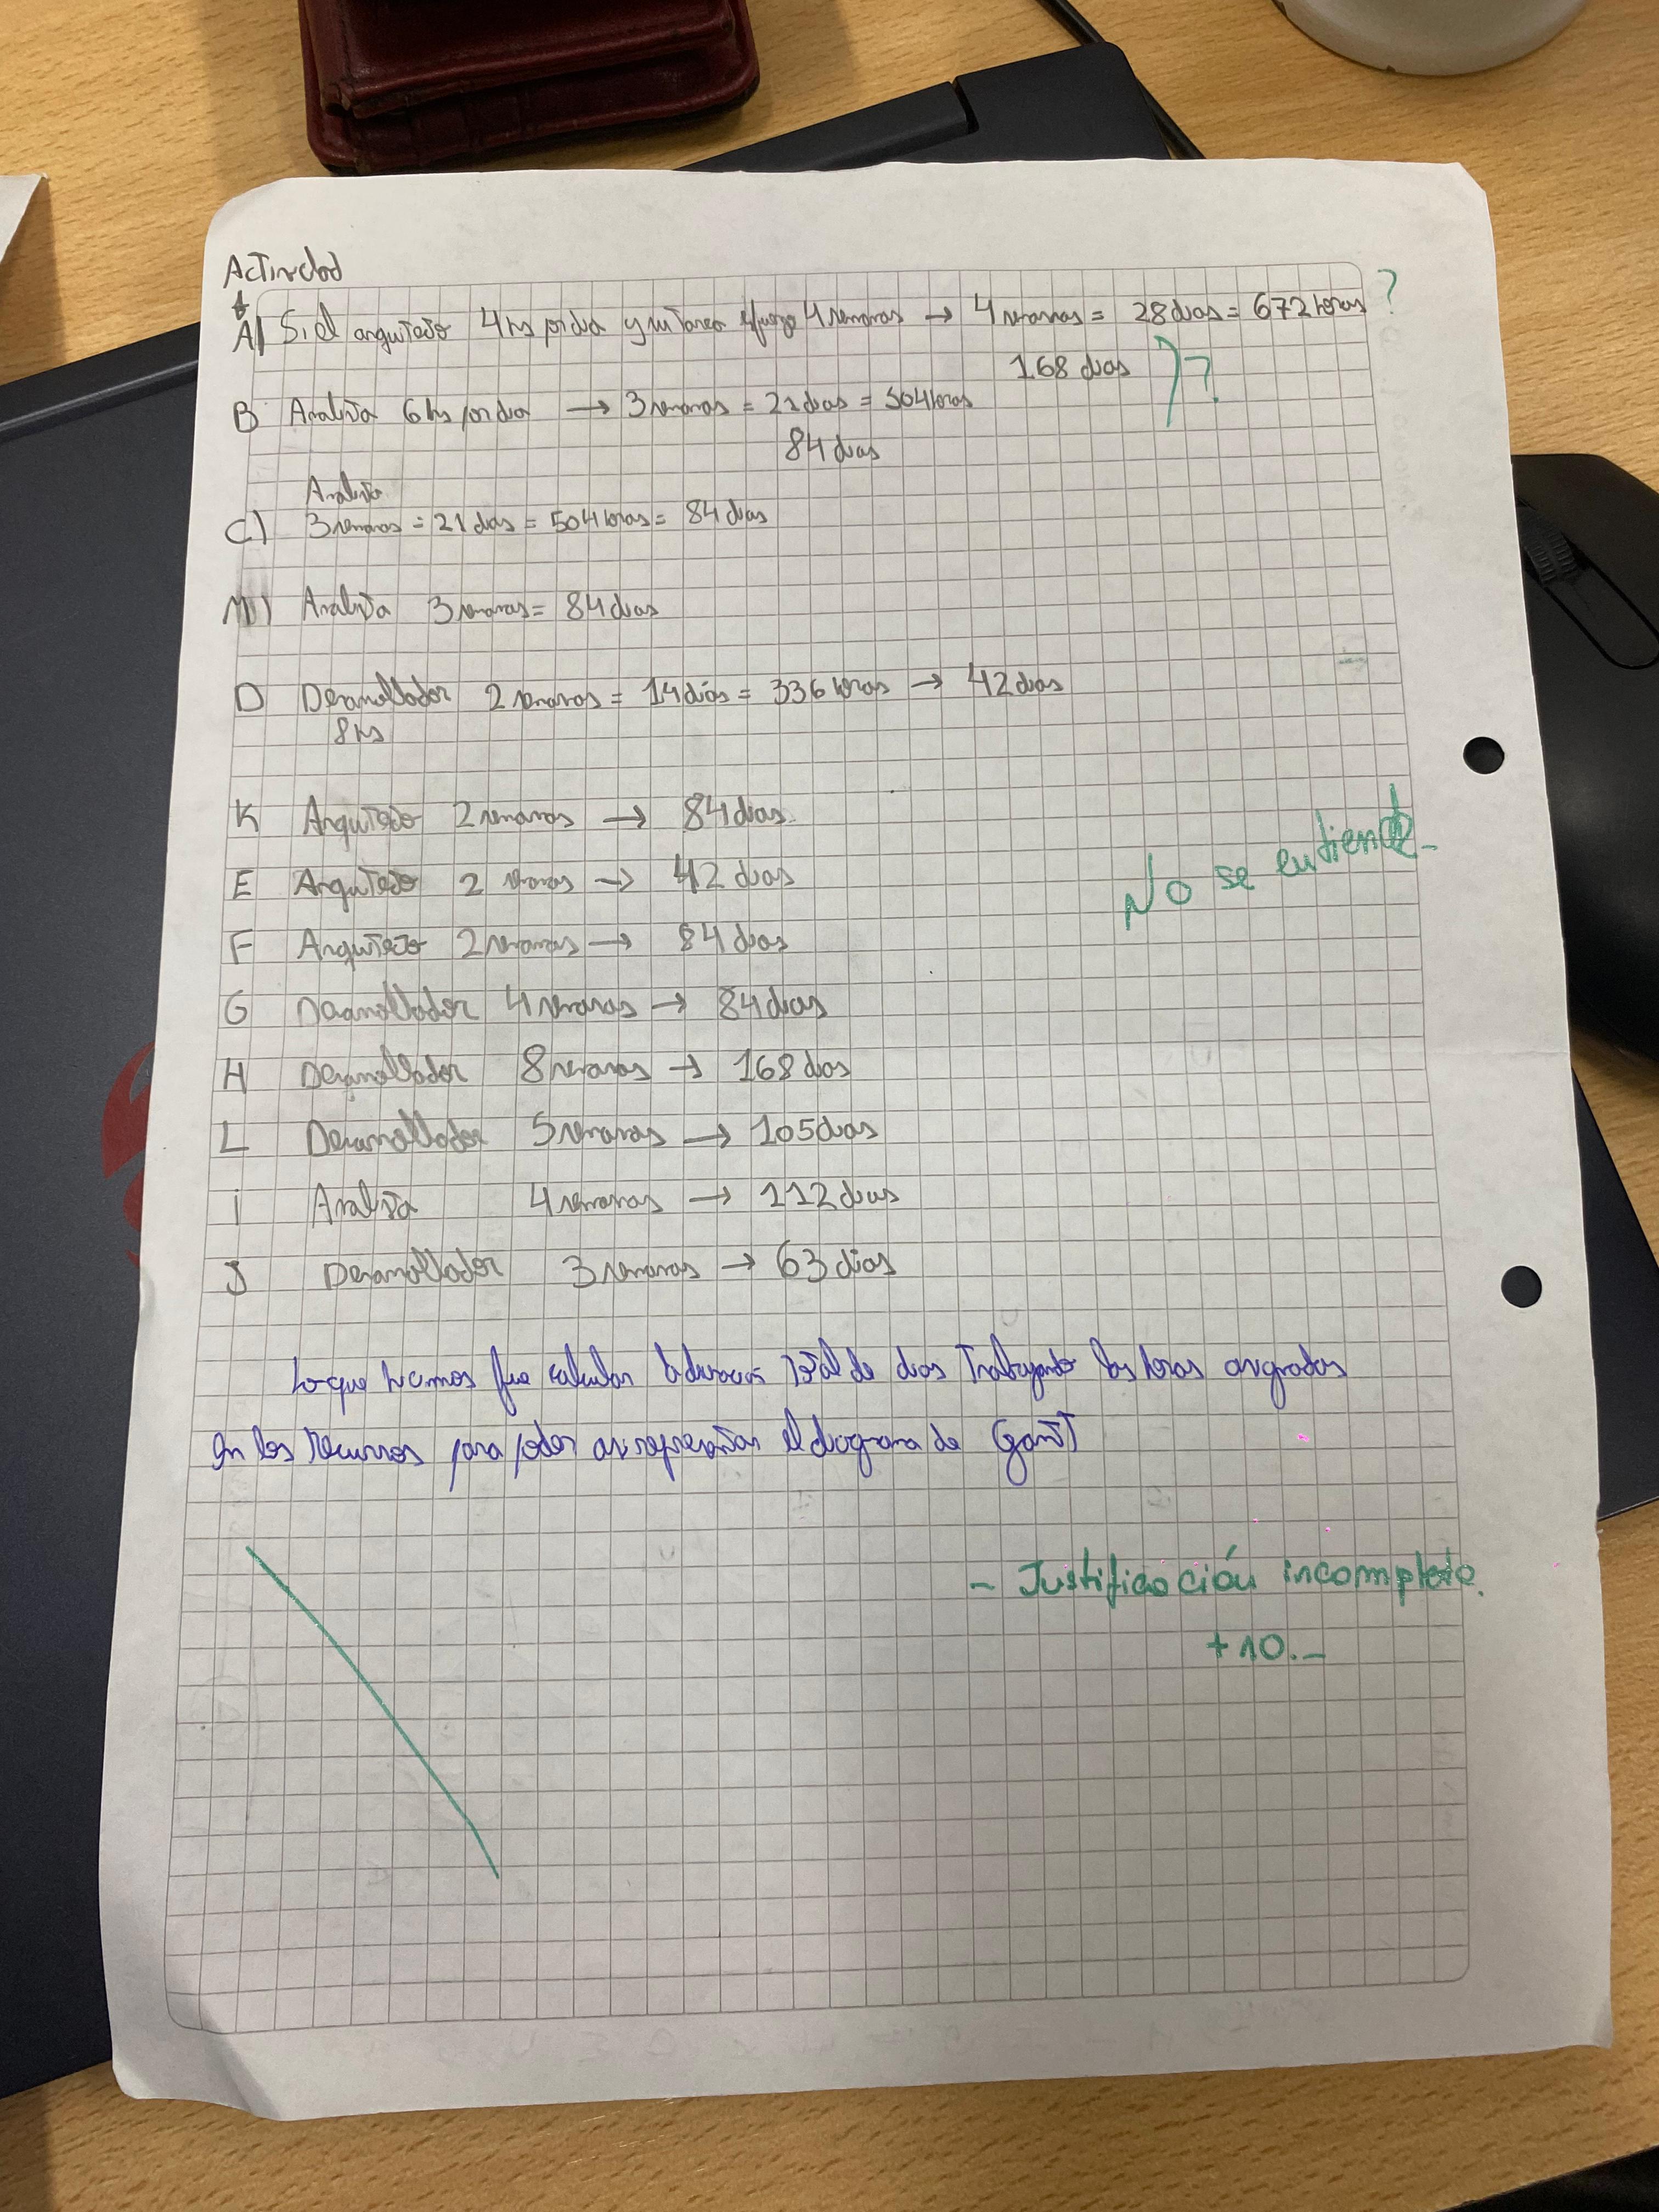 Actividad
A) Si el arquitecto 4hs por dia y su tarea 4 semanas → 4 semanas = 28 dias = 672 horas ?
168 dias ) ?
B Analista 6 hs por dia → 3 semanas = 21 dias = 504 horas
84 dias
Analista
C) 3 semanas = 21 dias = 504 horas = 84 dias
M) Analista 3 semanas = 84 dias
D Desarrollador 2 semanas = 14 dias = 336 horas → 42 dias
8hs
K Arquitecto 2 semanas → 84 dias.
No se entiende_
E Arquitecto 2 semanas → 42 dias
F Arquitecto 2 semanas → 84 dias
G Desarrollador 4 semanas → 84 dias
H Desarrollador 8 semanas → 168 dias
L Desarrollador 5 semanas → 105 dias
i Analista 4 semanas → 112 dias
J Desarrollador 3 semanas → 63 dias
Lo que hicimos fue calcular la duracion total de dias trabajando las horas asignadas
en los recursos para poder asi representar el diagrama de Gantt
- Justificación incompleta.
+10._